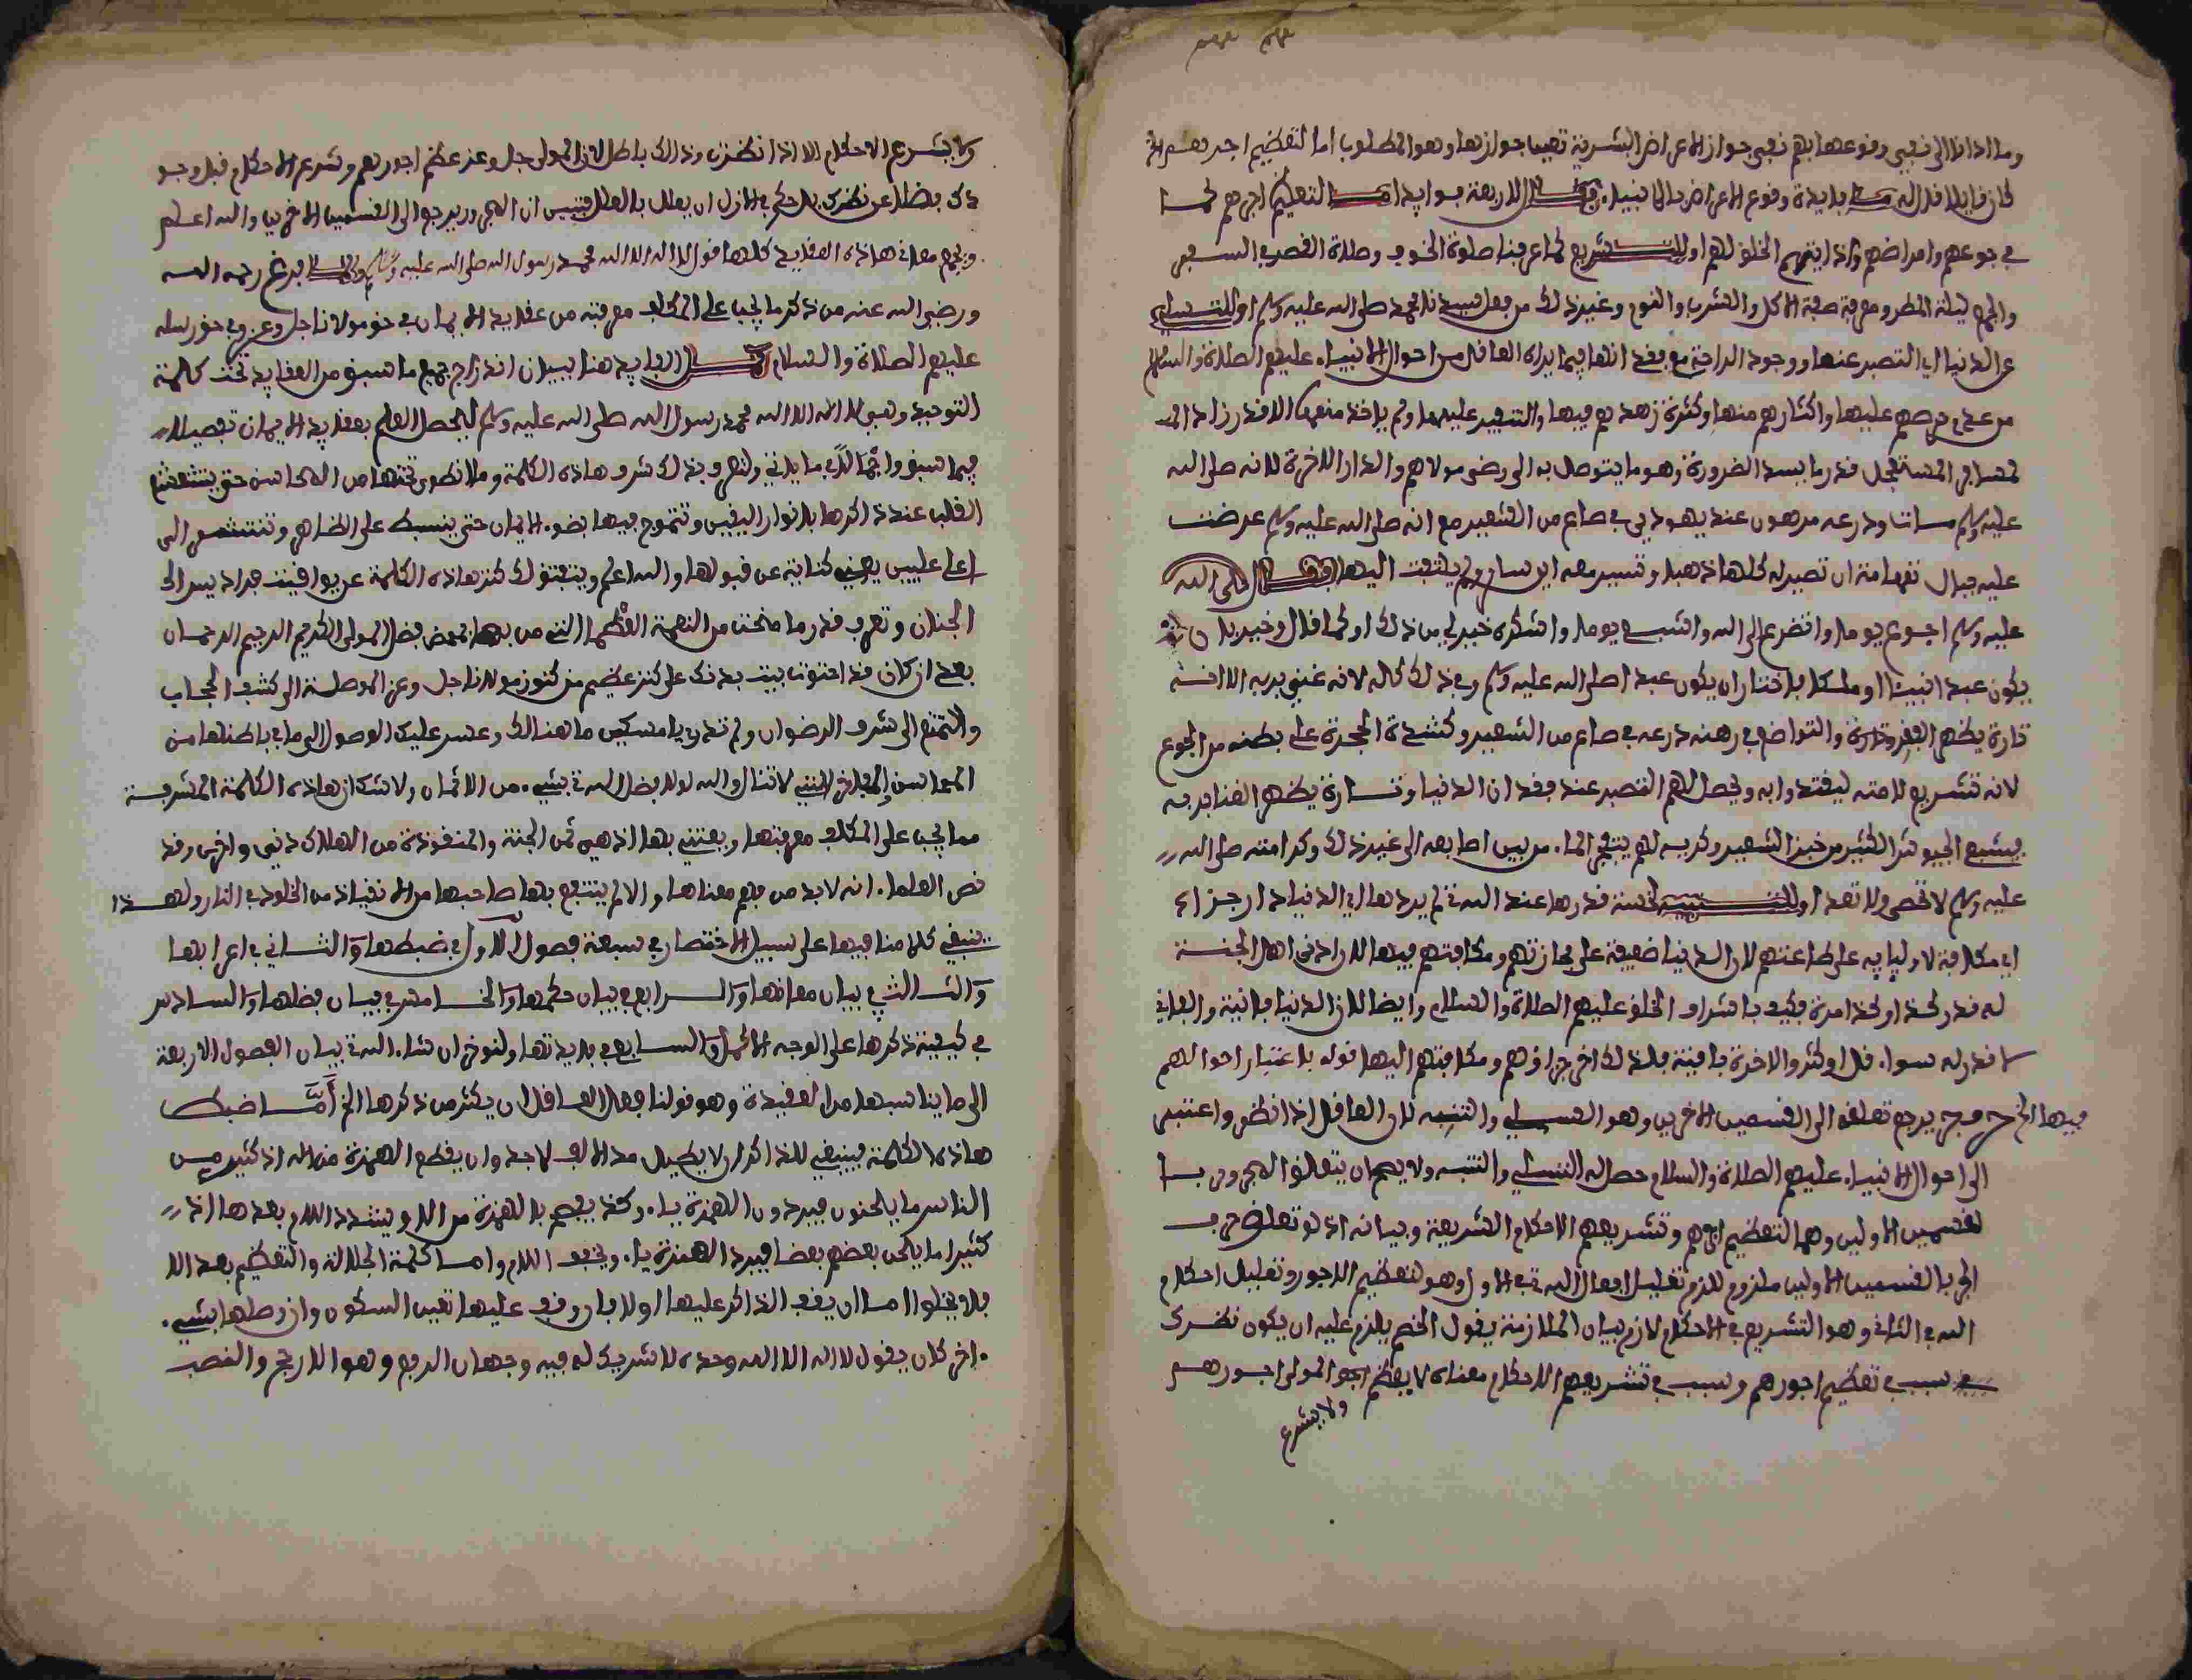 وما اذا الى نفي وقوعها بهم نفي جواز الاعراض البشرية تعين جوازها وهو المطلوب اما لتعظيم اجرهم
كان قايلا قال له ما فايدة وقوع الاعراض بالانبياء فقال لاربعة فوايد اما لتعظيم اجرهم كما
في جوعهم وامراضهم واذاية الخلق لهم او للتشريع كما عرفنا صلوة الخوف وصلاة القصر في السفر
والجمع ليلة المطر ومعرفة صفة الاكل والشرب والنوم وغير ذلك من فعل سيدنا محمد صلى الله عليه وسلم او للتسلي
عن الدنيا اي التصبر عنها ووجود الراحة مع فقدانها فيما يراه العاقل من احوال الانبياء عليهم الصلاة والسلام
من عدم حرصهم عليها واكثارهم منها وكثرة زهدهم فيها والتنفير عليها ولم ياخذ منها الا قدر زاد الـ
لمسافر المستعجل قدر ما يسد الضرورة وهو ما يتوصل به الى رضى مولاهم والدار الاخرة لانه صلى الله
عليه وسلم مات ودرعه مرهون عند يهودي في صاع من الشعير مع انه صلى الله عليه وسلم عرضت
عليه جبال تهامة ان تصير له كلها ذهبا وتسير معه اين سار ولم يلتفت اليها وقال صلى الله
عليه وسلم اجوع يوما واتضرع الى الله واشبع يوما واشكره خير لي من ذلك او كما قال وخير بان
يكون عبدا نبيئا او ملكا فاختار ان يكون عبدا صلى الله عليه وسلم وفي ذلك كماله لانه غني بربه الا انه
تارة يظهر الفقر والتواضع في رهنه درعه في صاع من الشعير وكشدة الحجرة على بطنه من الجوع
لانه تشريع لامته ليقتدوا به ويحصل لهم التصبر عند فقدان الدنيا وتارة يظهر الغنا بربه
فيشبع الجيوش الكثير من خبز الشعير وكريه لهم ينبع الماء من بين اصابعه الى غير ذلك وكراماته صلى الله
عليه وسلم لا تحصى ولا تعد او للتنبيه لخسة قدرها عند الله تع لم يردها اي الدنيا دار جزاء
اي مكافاة لاوليايه على طاعتهم لان الدنيا ضعيفة على مجازتهم ومكافتهم فيها لان ادنى اهل الجنة
له قدر كذا وكذا مرة فكيف باشراف الخلق عليهم الصلاة والسلام وايضا لان الدنيا فانية والفاني
لا قدر له سواء قل او كثر والاخرة باقية فلذلك اخر جزاؤهم ومكافتهم اليها قوله باعتبار احوالهم
فيها الخ حرف جر يرجع تعلقه الى القسمين الاخرين وهو التسلي والتنبه لان العاقل اذا نظر واعتبر
الى احوال الانبياء عليهم الصلاة والسلام حصل له التسلي والتنبه ولا يصح ان يتعلق المجرور با
لقسمين الاولين وهما لتعظيم اجرهم وتشريعهم الاحكام الشريعة وبيانه انه لو تعلق حرف
الجر بالقسمين الاولين ملزوم للازم تعليل افعال الله تع في الاول وهو لتعظيم الاجور وتعليل احكام
الله في الثاني وهو التشريع في الاحكام لازم بيان الملازمة يقول الخصم يلزم عليه ان يكون نظرك
سبب في تعظيم اجورهم وسبب في تشريعهم الاحكام معناه لا يعظم المولى اجورهم
ولا يشرع
ولا يشرع الاحكام الا اذا نظرت وذلك باطل لان المولى جل وعز عظم اجورهم وشرع الاحكام قبل وجو
دك فضلا عن نظرك بل حكم في الازل ان يعلل بالعلل فتبين ان المجرور يرجع الى القسمين الاخرين والله اعلم
ويجمع معاني هاذه العقايد كلها قول لا اله الا الله محمد رسول الله صلى الله عليه وسلم ولما فرغ رحمه الله
ورضي الله عنه من ذكر ما يجب على المكلف معرفته من عقايد الايمان في حق مولانا جل وعز وفي حق رسله
عليهم الصلاة والسلام كمل الفايدة هنا ببيان اندراج جميع ما سبق من العقايد تحت كلمة
التوحيد وهي لا اله الا الله محمد رسول الله صلى الله عليه وسلم ليحصل العلم بعقايد الايمان تفصيلا
فيما سبق واجمالا فيما ياتي ولتعرف بذلك شرف هاذه الكلمة وما انطوى تحتها من المحاسن حتى يتشعشع
القلب عند ذاكرها بانوار اليقين وتتموج فيها بضوء الايمان حتى ينبسط على الظاهر وتنتشر الى
اعلى عليين يعني كناية عن قبولها والله اعلم وينفتق لك كنز هاذه الكلمة عن يواقيت فراديس الى
الجنان وتعرف قدر ما منحت من النعمة العظما التي من بها بمحض فضل المولى الكريم الرحيم الرحمان
بعد ان كان قد احتوت بيت بدنك على كنز عظيم من كنوز مولانا جل وعز الموصلة الى كشف الحجاب
والتمتع الى شرف الرضوان ولم تدر يا مسكين ما هنالك وعسر عليك الوصول الى ما في باطنها من
المحاسن الفاخرة التي لا تنال والله لولا فضل الله تع بشيء من الاثمان ولا شك ان هاذه الكلمة المشرفة
مما يجب على المكلف معرفتها ويعتني بها اذ هي ثمن الجنة والمنقوذة من الهلاك دنيى واخرى وقد
نص العلماء انه لا بد من فهم معناها والا لم ينتفع بها صاحبها من الانقياذ من الخلود في النار ولهذا
ينبغي كلامنا فيها على سبيل الاختصار في سبعة فصول الاول في ضبطها والثاني في اعرابها
والثالث في بيان معانها والرابع في بيان حكمها والخامس في بيان فضلها والسادس
في كيفية ذكرها على الوجه الاكمل والسابع في فايدتها ولنوخر ان شاء الله تع بيان الفصول الاربعة
الى ما يناسبها من العقيدة وهو قولنا فعلى العاقل ان يكثر من ذكرها الخ أمّا ضبط
هاذه الكلمة فينبغي للذاكر ان لا يطيل مد الالف لا جدا وان يقطع الهمزة من اله اذ كثير من
الناس ما يلحنون فيردون الهمزة ياء وكذا يفصح بالهمزة من الا ويشدد اللام بعدها اذ
كثيرا ما يلحن بعضهم بعضا فيرد الهمزة ياء ويخفف اللام واما كلمة الجلالة والتعظيم بعد الا
فلا يخلوا اما ان يقف الذاكر عليها اولا فان وقف عليها تعين السكون وان وصلها بشيء
اخر كان يقول لا اله الا الله وحده لا شريك له فيه وجهان الرفع وهو الارجح والنصب